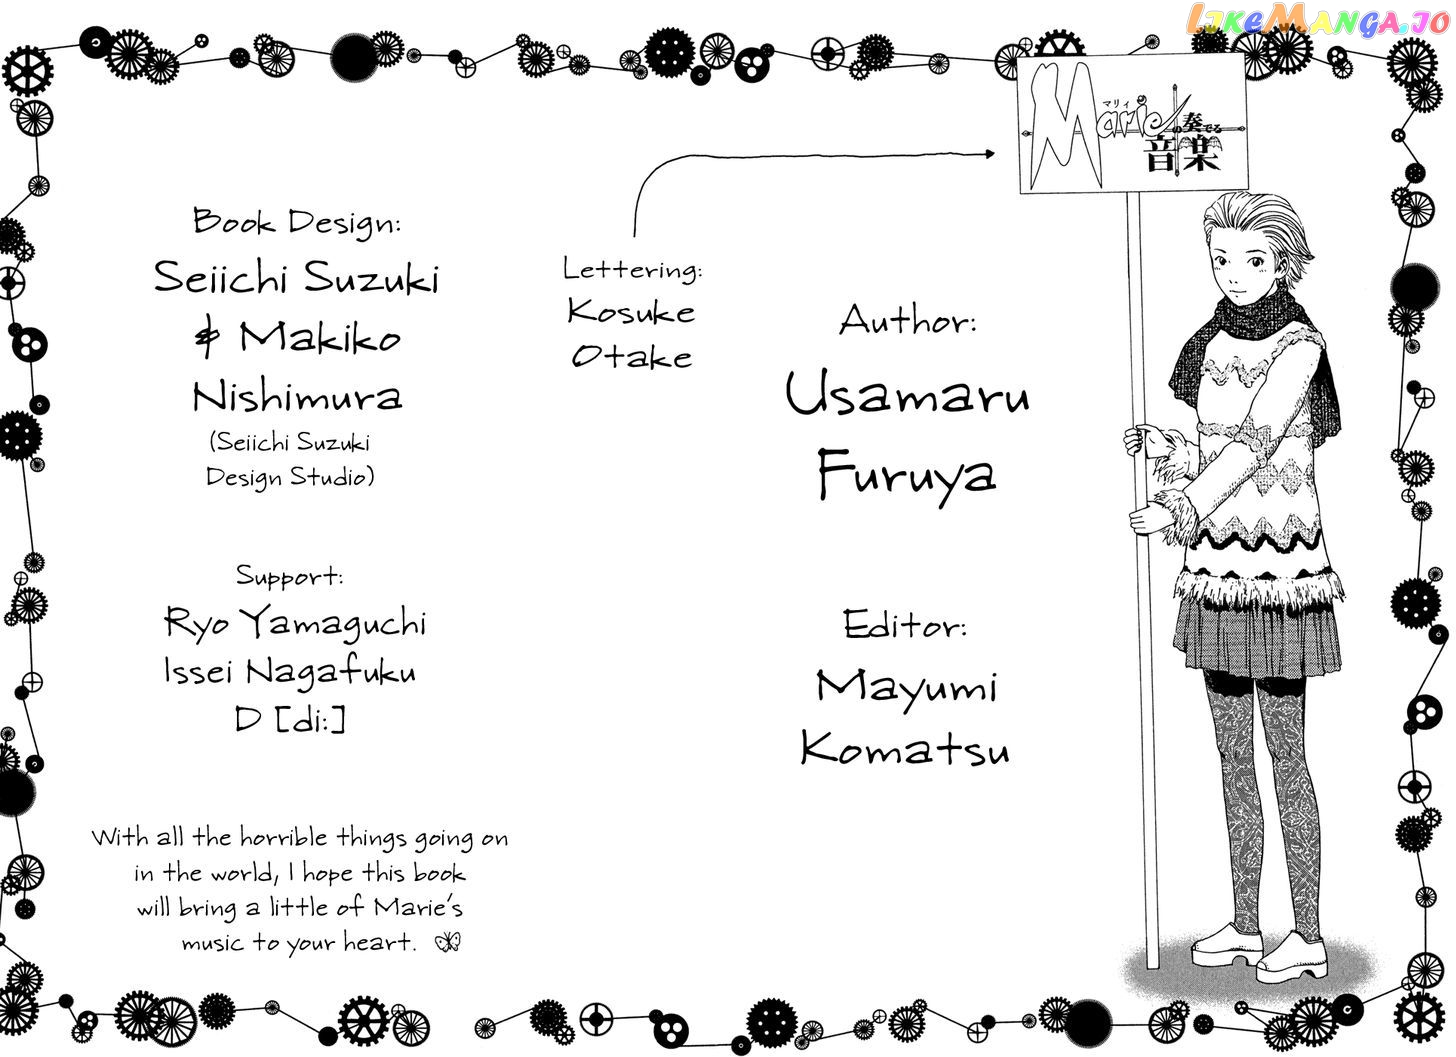 LIKEMANGA.IO
Marie
マリィ
の奏でる
音楽
Book Design:
Seiichi Suzuki
& Makiko
Nishimura
(Seiichi Suzuki
Design Studio)
Lettering:
Kosuke
Otake
Author:
Usamaru
Furuya
Support:
Ryo Yamaguchi
Issei Nagafuku
D [di:]
Editor:
Mayumi
Komatsu
With all the horrible things going on
in the world, I hope this book
will bring a little of Marie's
music to your heart.